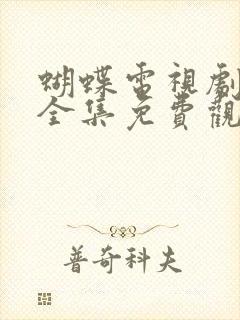 蝴蝶電視劇
全集免費觀
普奇科夫